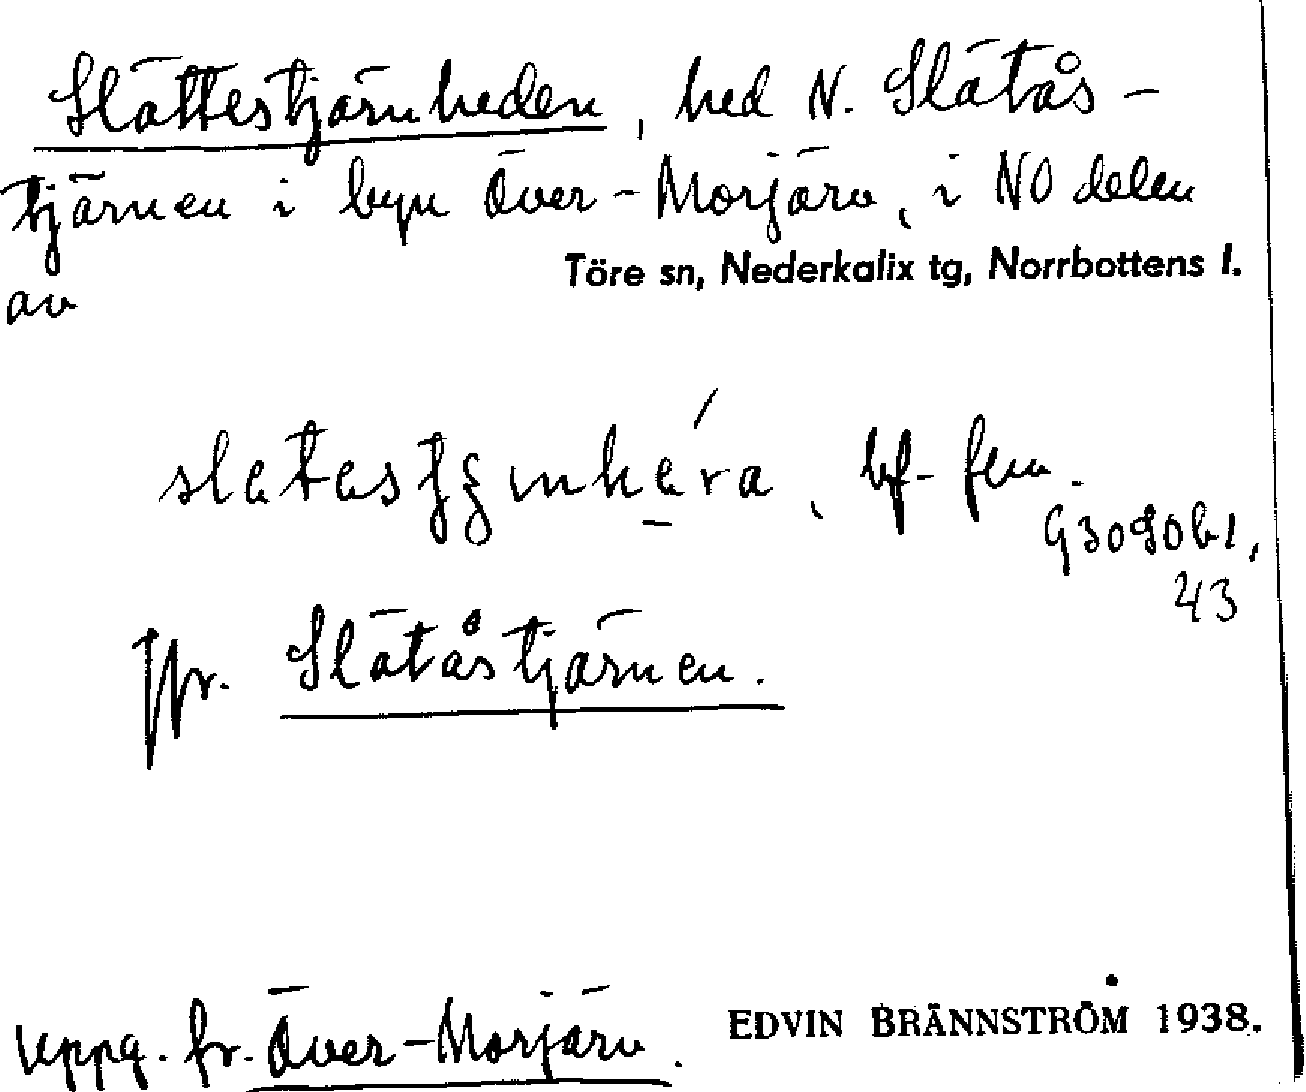 Slättestjärnheden, hed N. Slätås-
tjärnen i byn Över-Morjärv, i NO delen
av Töre sn, Nederkalix tg, Norrbottens l.
bf. fem.
43
Jfr. Slätåstjärnen.
uppg. fr. Över-Morjärv. EDVIN BRÄNNSTRÖM 1938.